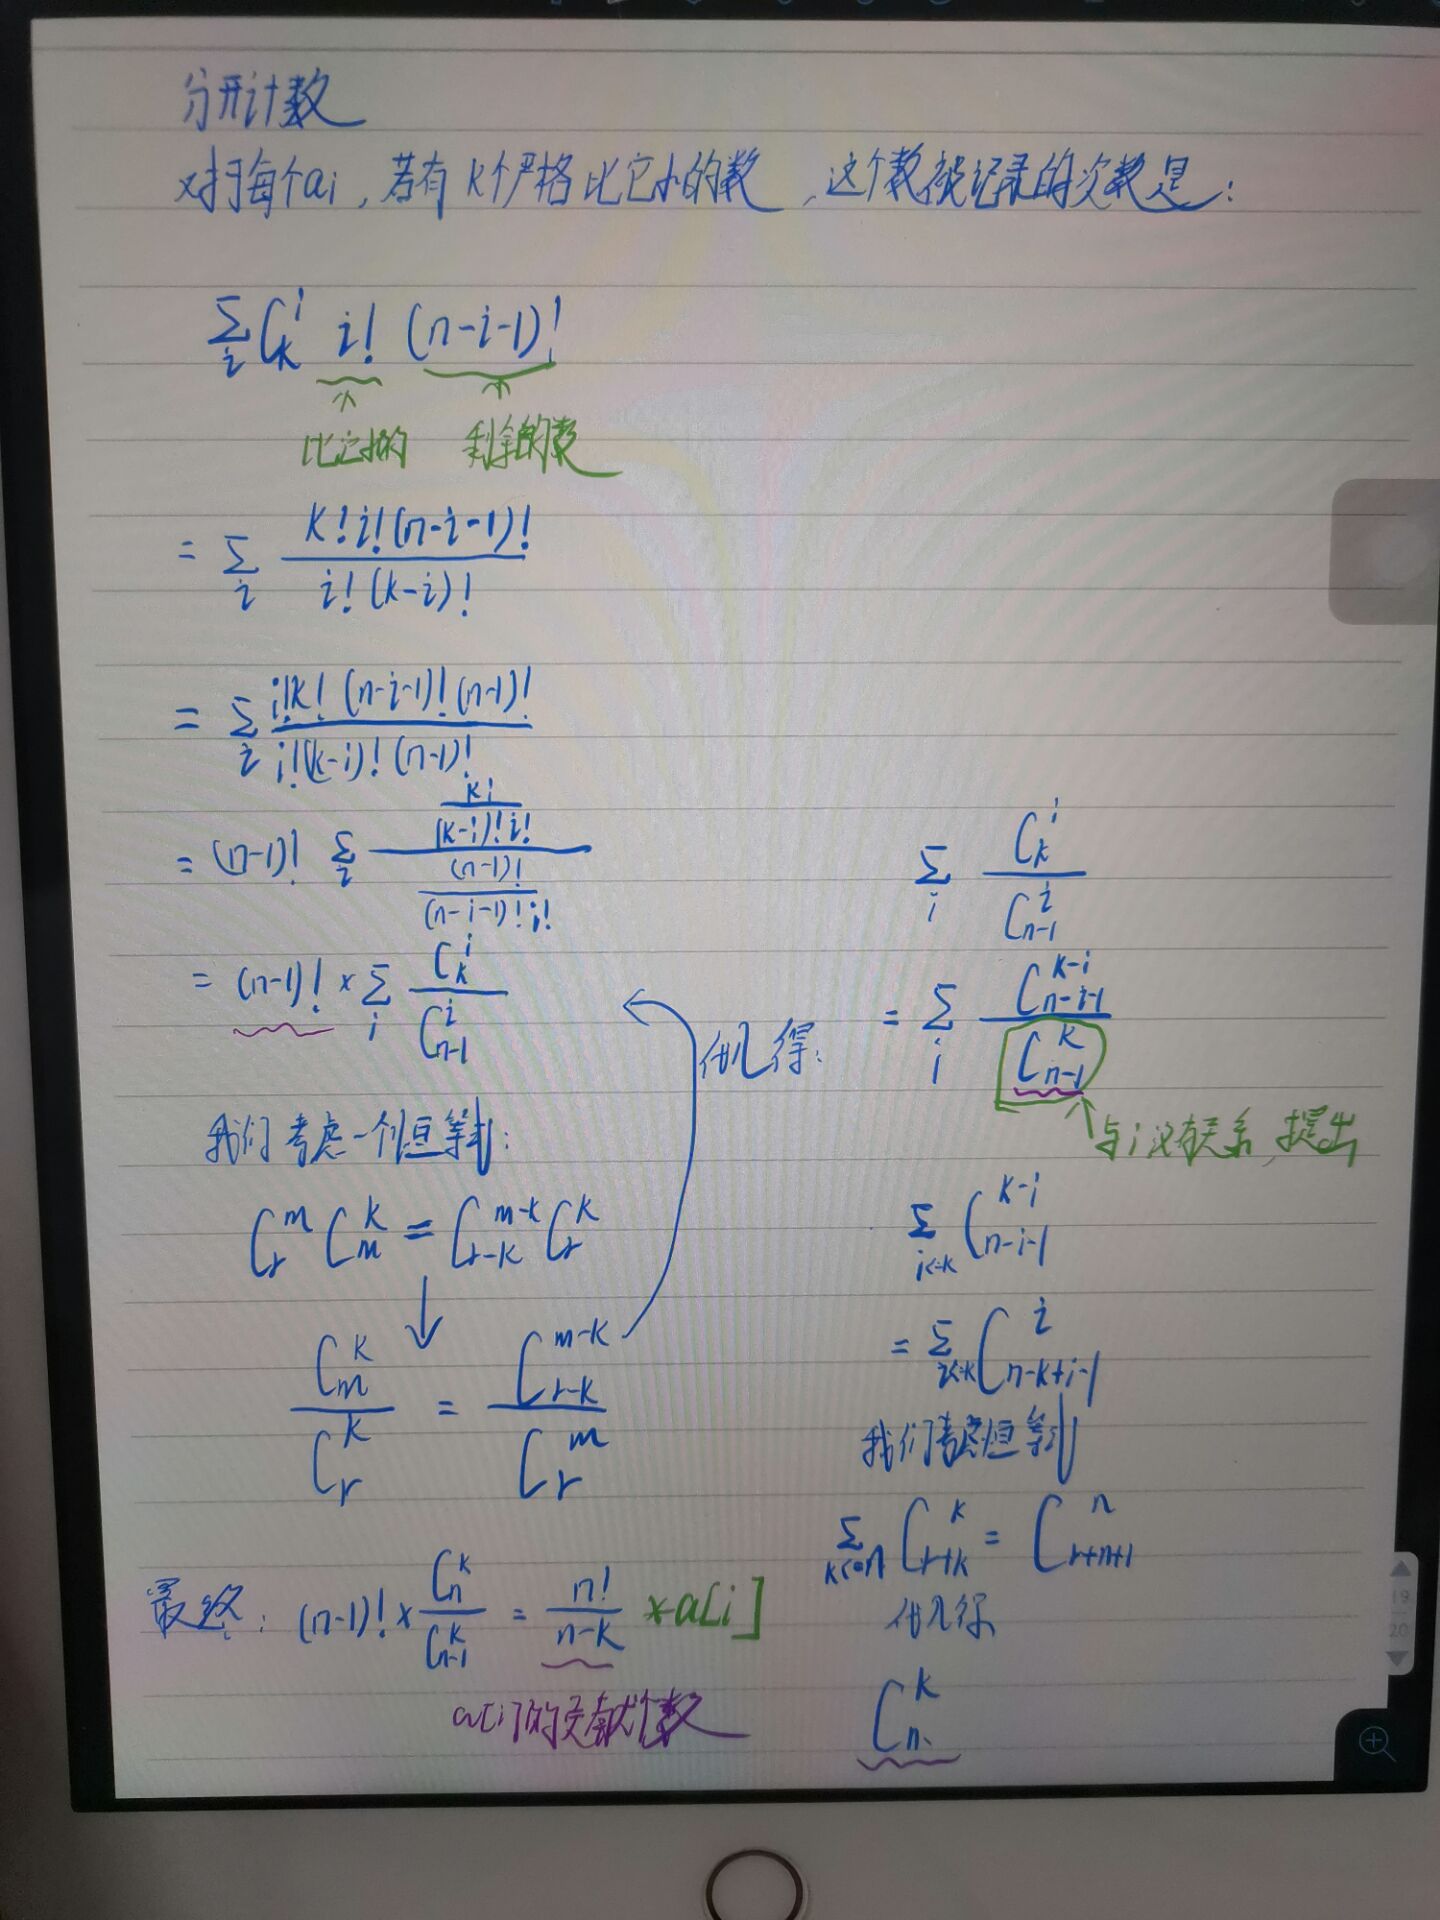 分开计数
对于每个ai,若有k个严格比它小的数,这个数被记录的次数是:
∑_i C_k^i i! (n-i-1)!
比它小的 剩余的数
= ∑_i (k! i! (n-i-1)!) / (i! (k-i)!)
= ∑_i (i! k! (n-i-1)! (n-1)!) / (i! (k-i)! (n-1)!)
= (n-1)! ∑_i (k! / ((k-i)! i!)) / ((n-1)! / ((n-i-1)! i!))
= (n-1)! × ∑_i C_k^i / C_{n-1}^i
我们考虑一个恒等式:
C_r^m C_m^k = C_{r-k}^{m-k} C_r^k
↓
C_m^k / C_r^k = C_{r-k}^{m-k} / C_r^m
代入得:
∑_i C_k^i / C_{n-1}^i
= ∑_i C_{n-i-1}^{k-i} / C_{n-1}^k
与i没有关系,提出
∑_{i<=k} C_{n-i-1}^{k-i}
= ∑_{i<=k} C_{n-k+i-1}^i
我们考虑恒等式
∑_{k<=n} C_{r+k}^k = C_{r+n+1}^n
代入得
C_n^k
最终: (n-1)! × C_n^k / C_{n-1}^k = n! / (n-k) * a[i]
a[i]的贡献个数
19
20